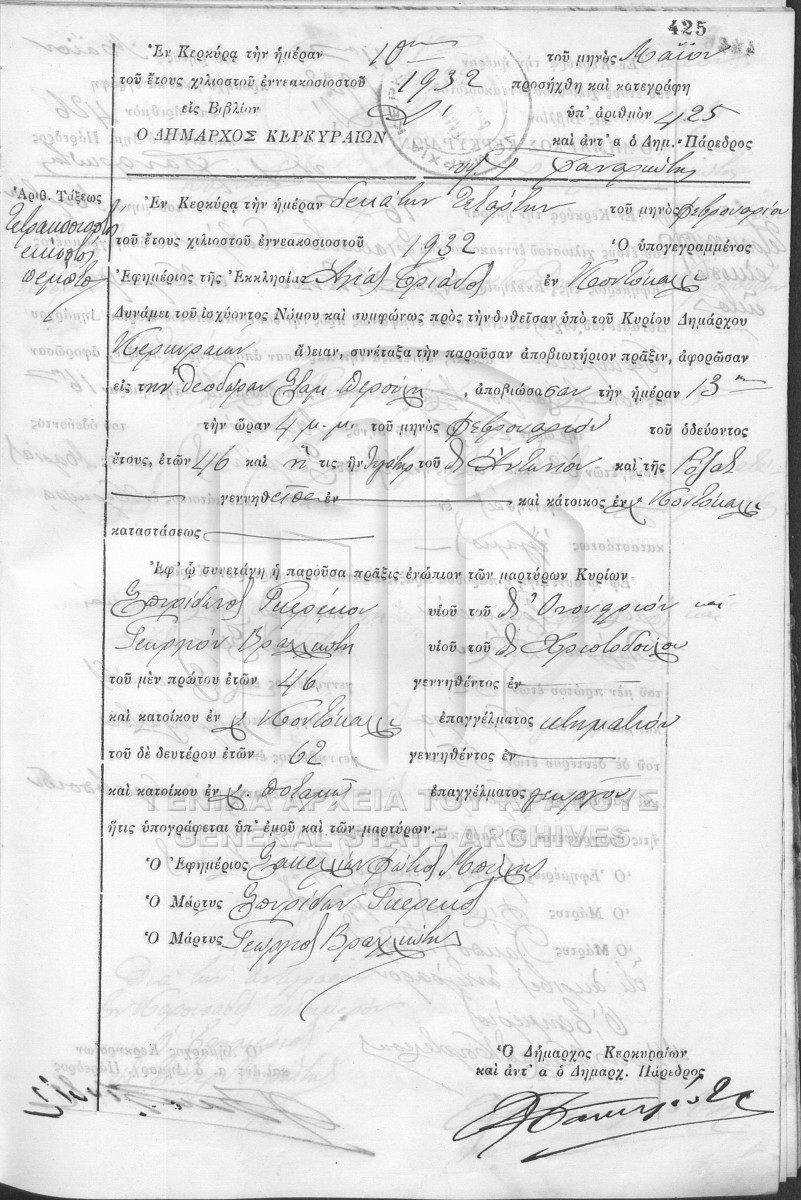 425
Ἐν Κερκύρᾳ τὴν ἡμέραν 10ην τοῦ μηνὸς Μαΐου
τοῦ ἔτους χιλιοστοῦ ἐννεακοσιοστοῦ 1932 προσήχθη καὶ κατεγράφη
εἰς Βιβλίον ὑπ' ἀριθμὸν 425
Ο ΔΗΜΑΡΧΟΣ ΚΕΡΚΥΡΑΙΩΝ καὶ ἀντ' α ὁ Δημ. Πάρεδρος
Ἀριθ. Τάξεως
Τετρακοσιοστὸς
εἰκοστὸς
πέμπτος
Ἐν Κερκύρᾳ τὴν ἡμέραν δεκάτην τετάρτην τοῦ μηνὸς Φεβρουαρίου
τοῦ ἔτους χιλιοστοῦ ἐννεακοσιοστοῦ 1932 Ὁ ὑπογεγραμμένος
Ἐφημέριος τῆς Ἐκκλησίας Ἁγίας Τριάδος ἐν Κοντόκαλι
Δυνάμει τοῦ ἰσχύοντος Νόμου καὶ συμφώνως πρὸς τὴν δοθεῖσαν ὑπὸ τοῦ Κυρίου Δημάρχου
Κερκυραίων ἄδειαν, συνέταξα τὴν παροῦσαν ἀποβιωτήριον πρᾶξιν, ἀφορῶσαν
εἰς τὴν Θεοδώραν , ἀποβιώσασαν τὴν ἡμέραν 13ην
τὴν ὥραν 4 μ.μ. τοῦ μηνὸς Φεβρουαρίου τοῦ ὁδεύοντος
ἔτους, ἐτῶν 46 καὶ ἥ τις ἦν θυγάτηρ τοῦ Ἀντωνίου καὶ τῆς Ρόζας
γεννηθεῖσα ἐν καὶ κάτοικος ἐν χ Κοντόκαλι
καταστάσεως
Ἐφ' ᾧ συνετάγη ἡ παροῦσα πρᾶξις ἐνώπιον τῶν μαρτύρων Κυρίων
Σπυρίδωνος Γκερέκου υἱοῦ τοῦ καὶ
Γεωργίου Βραχλιώτη υἱοῦ τοῦ Χριστοδούλου
τοῦ μὲν πρώτου ἐτῶν 46 γεννηθέντος ἐν
καὶ κατοίκου ἐν χ. Κοντόκαλι ἐπαγγέλματος κτηματίου
τοῦ δὲ δευτέρου ἐτῶν 62 γεννηθέντος ἐν
καὶ κατοίκου ἐν χ. Ποταμοῦ ἐπαγγέλματος γεωργοῦ
ΓΕΝΙΚΑ ΑΡΧΕΙΑ ΤΟΥ ΚΡΑΤΟΥΣ
ἥτις ὑπογράφεται ὑπ' ἐμοῦ καὶ τῶν μαρτύρων.
GENERAL STATE ARCHIVES
Ὁ Ἐφημέριος Φώτιος
Ὁ Μάρτυς Σπυρίδων Γκερέκος
Ὁ Μάρτυς Γεώργιος Βραχλιώτης
Ὁ Δήμαρχος Κερκυραίων
καὶ ἀντ' α ὁ Δημαρχ. Πάρεδρος